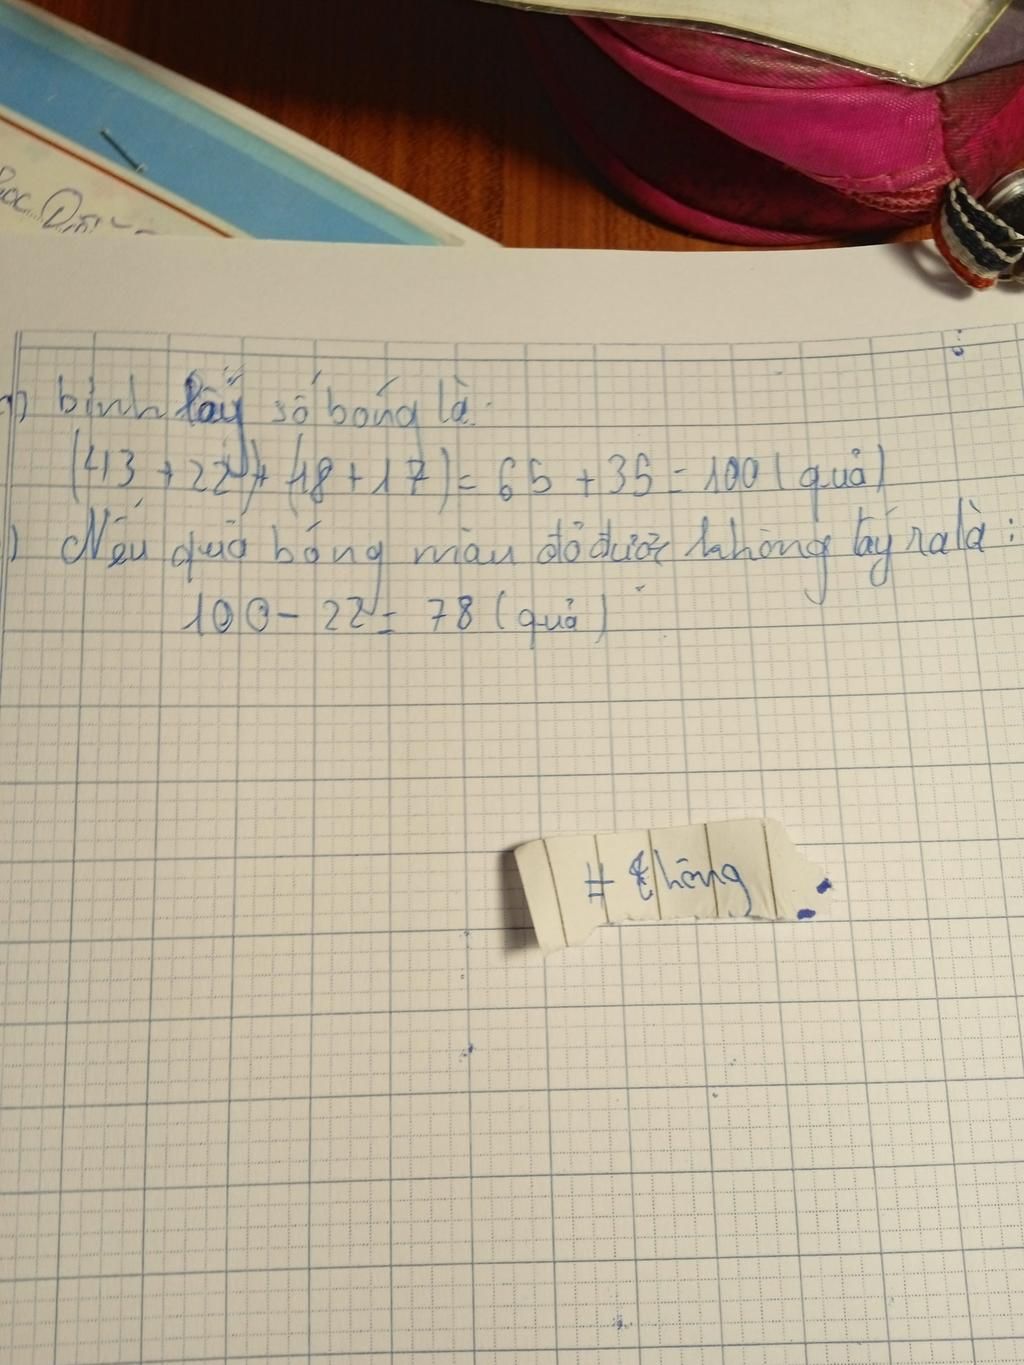 bình lấy số bóng là.
(43 + 22) + (18 + 17) = 65 + 35 = 100 (quả)
) Nếu quả bóng màu đỏ được không lấy ra là :
100 - 22 = 78 (quả)
# thông